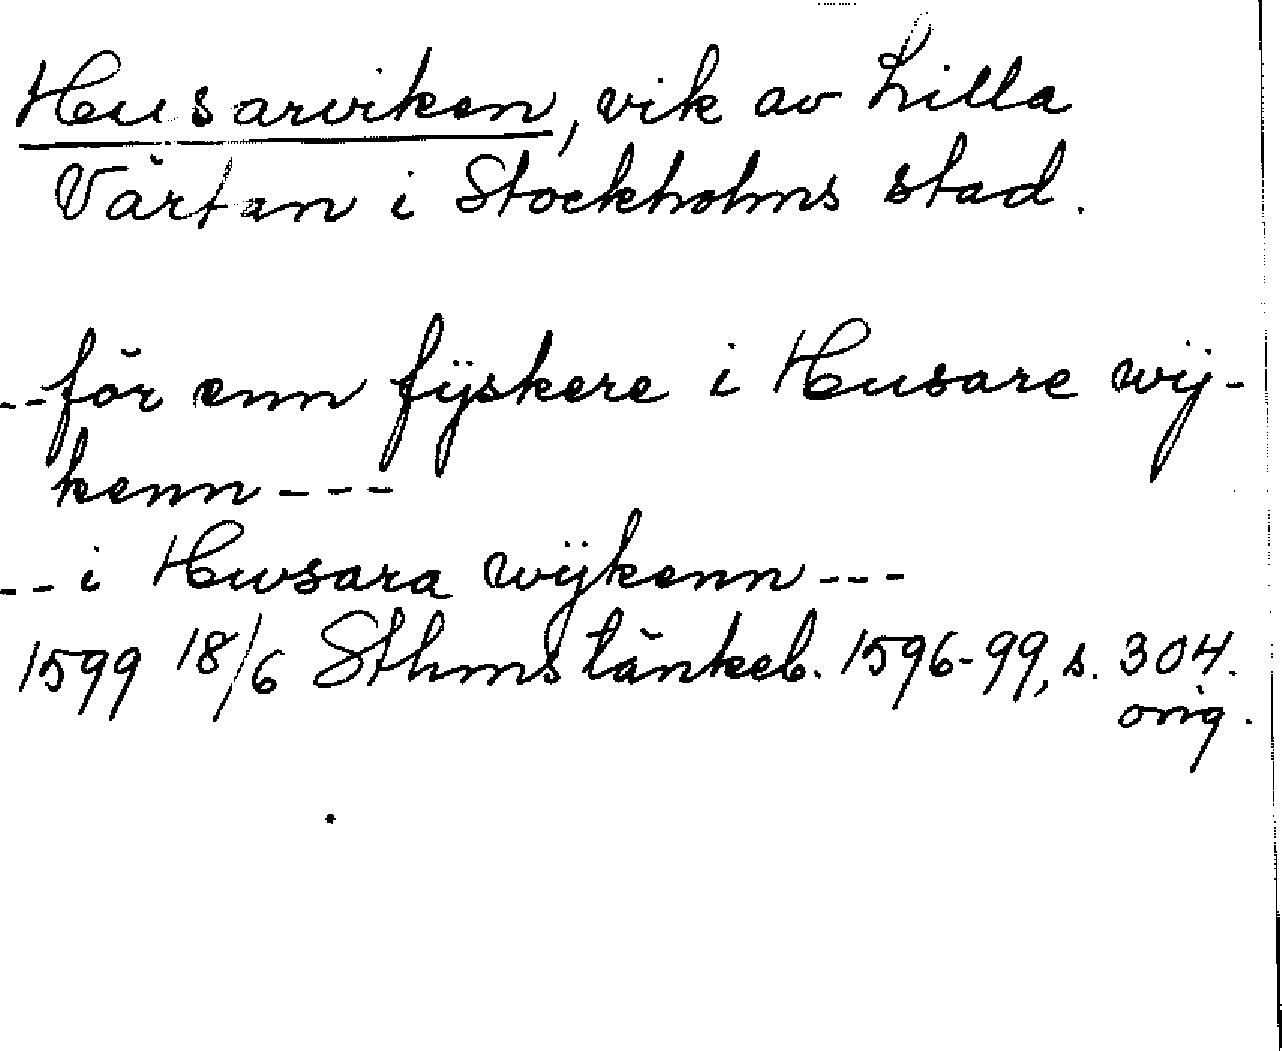 Husarviken, vik av Lilla
Värtan i Stockholms stad.
--för enn fÿskere i Husare wÿ-
kenn---
--i Hwsara wÿkenn---
1599 18/6 Sthms tänkeb. 1596-99, s. 304.
orig.